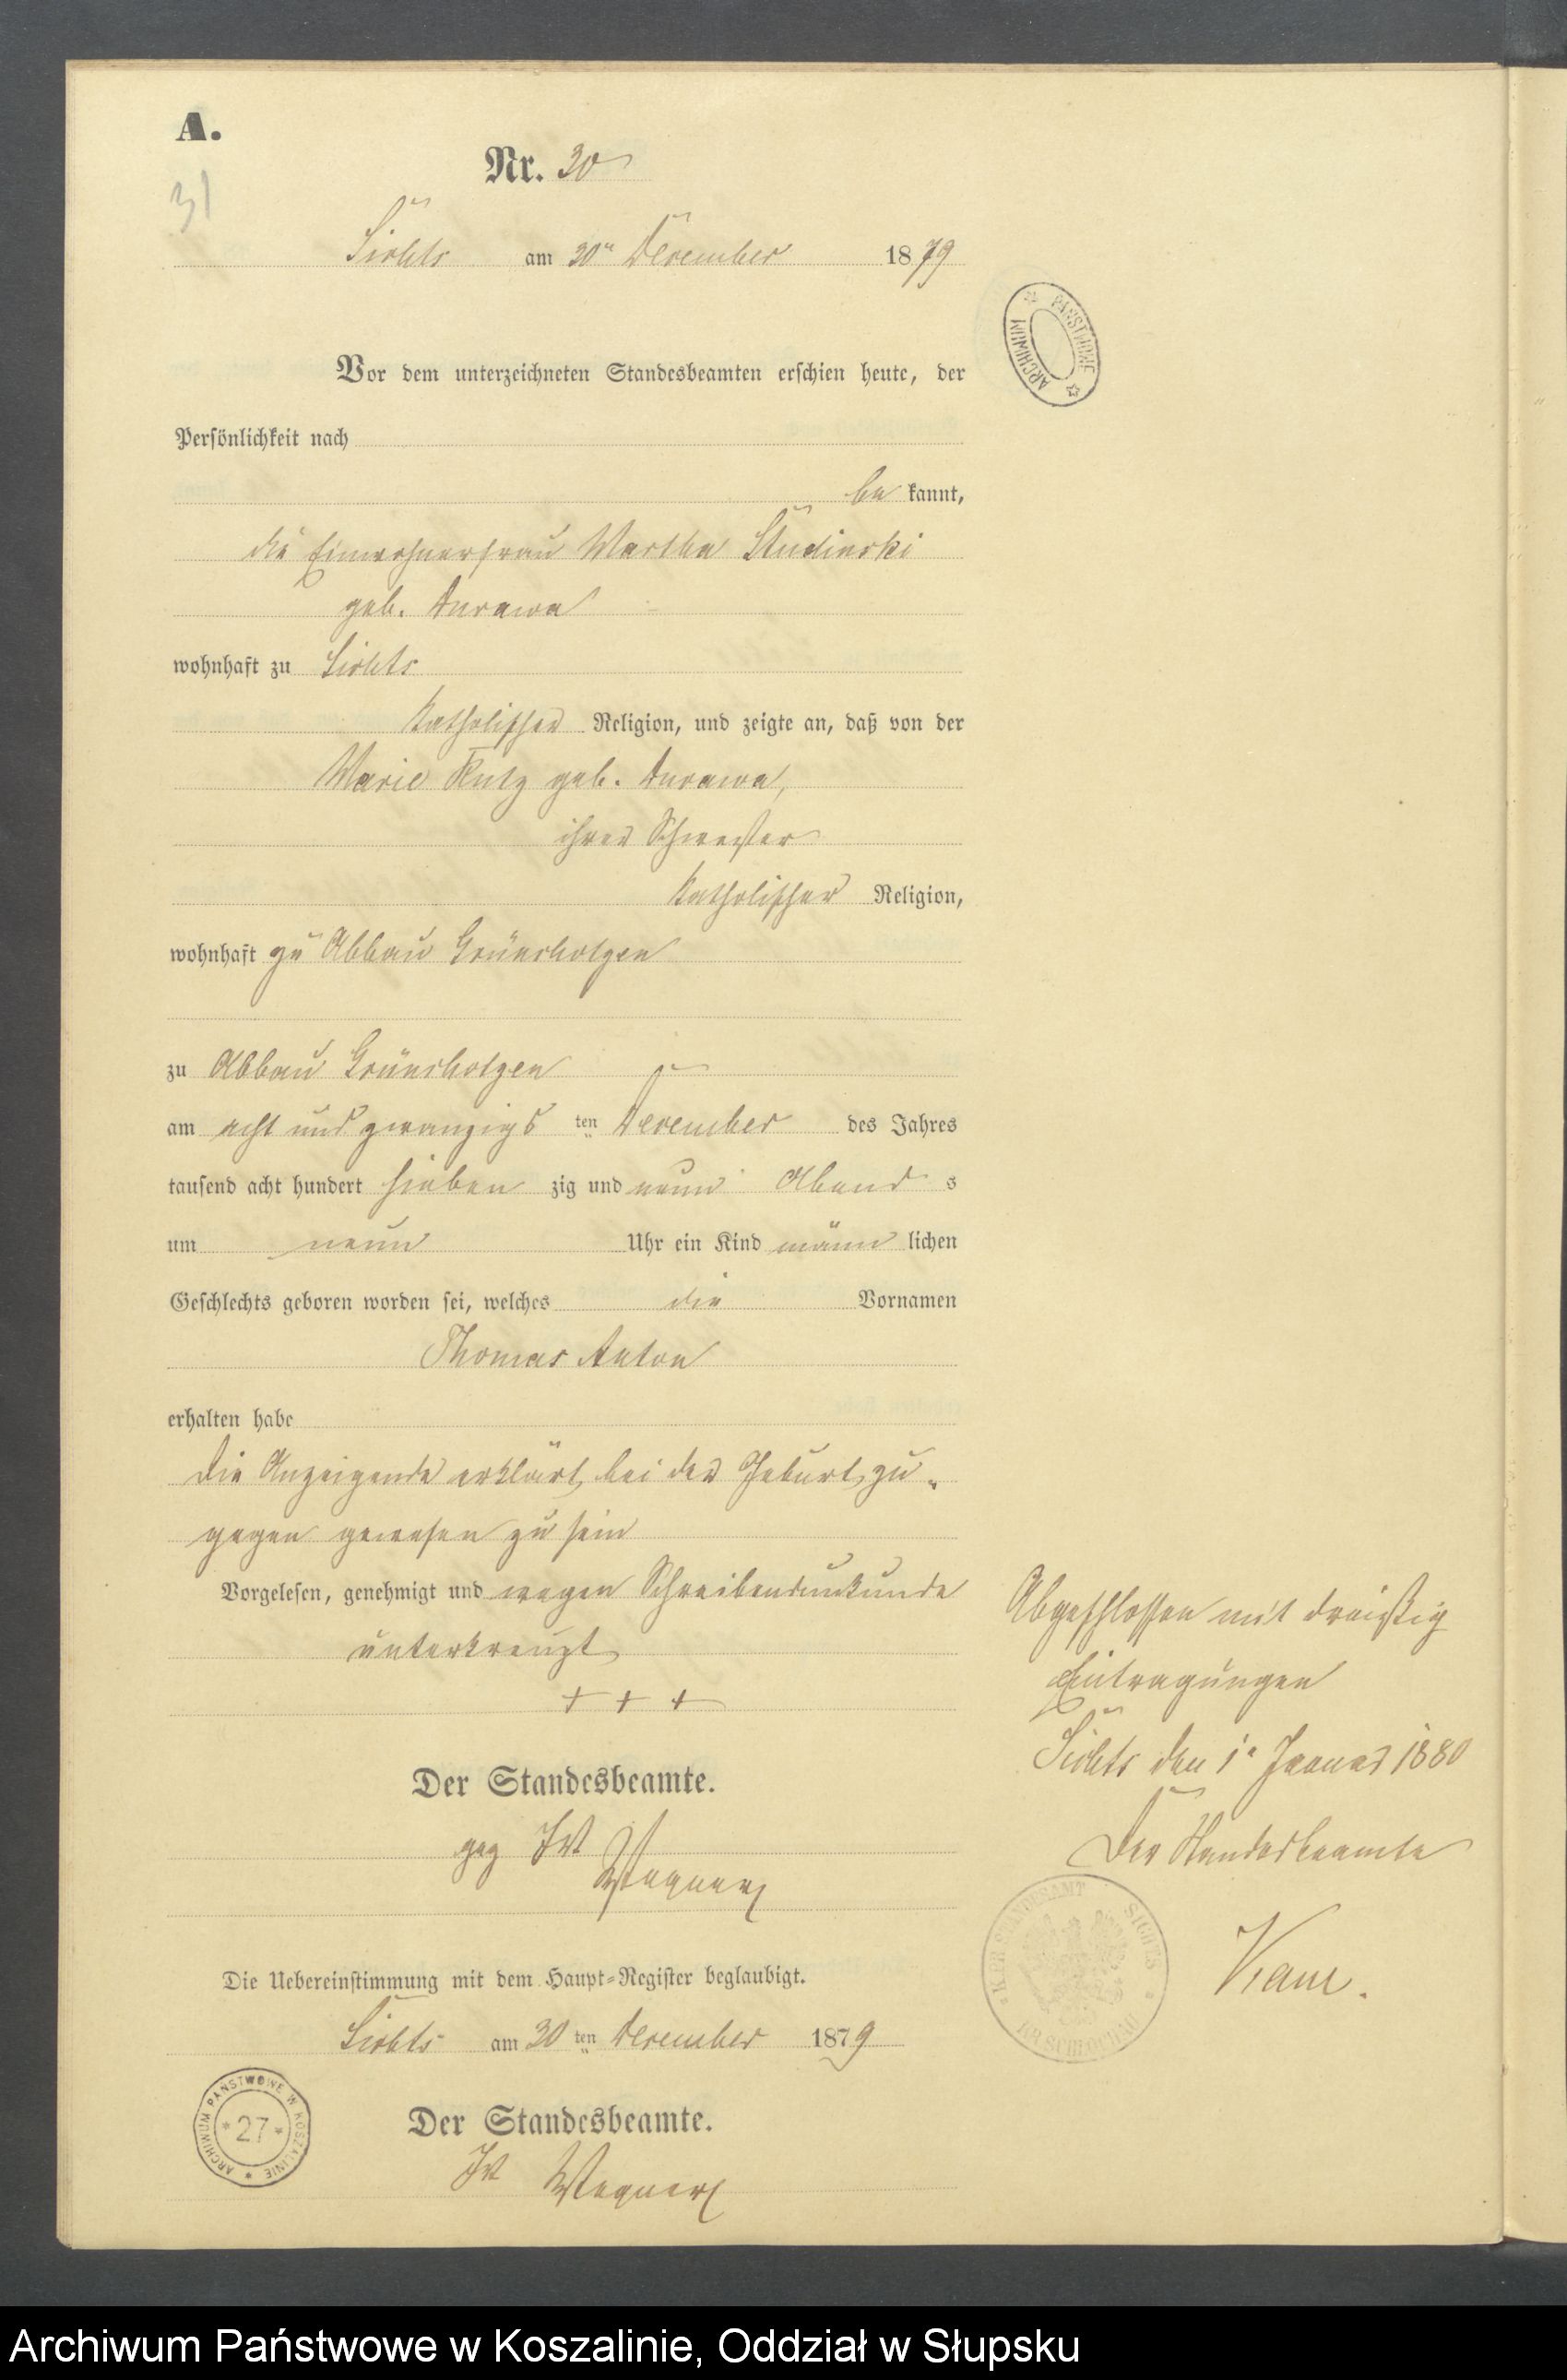 A.
31
Nr. 30
Sichts am 30ten December 1879
Vor dem unterzeichneten Standesbeamten erschien heute, der
Persönlichkeit nach
be kannt,
die Einwohnerfrau Martha Studinski
geb. Durawa
wohnhaft zu Sichts
katholischer Religion, und zeigte an, daß von der
Marie Rutz geb. Durawa,
ihrer Schwester
katholischer Religion,
wohnhaft zu Abbau Grünchotzen
zu Abbau Grünchotzen
am acht und zwanzigs ten December des Jahres
tausend acht hundert sieben zig und neun Abend s
um neun Uhr ein Kind männ lichen
Geschlechts geboren worden sei, welches die Vornamen
Thomas Anton
erhalten habe
Die Anzeigende erklärt, bei der Geburt zu-
gegen gewesen zu sein
Vorgelesen, genehmigt und wegen Schreibensunkunde
unterkreuzt
+ + +
Der Standesbeamte.
gez JV
Wegner
Die Uebereinstimmung mit dem Haupt-Register beglaubigt.
Sichts am 30 ten December 1879
Der Standesbeamte.
JV Wegner
Abgeschlossen mit dreißig
Eintragungen
Sichts den 1. Januar 1880
Der Standesbeamte
ARCHIWUM PAŃSTWOWE
STANDESAMT SICHTS
KR. SCHLOCHAU
ARCHIWUM PAŃSTWOWE W KOSZALINIE
27
Archiwum Państwowe w Koszalinie, Oddział w Słupsku